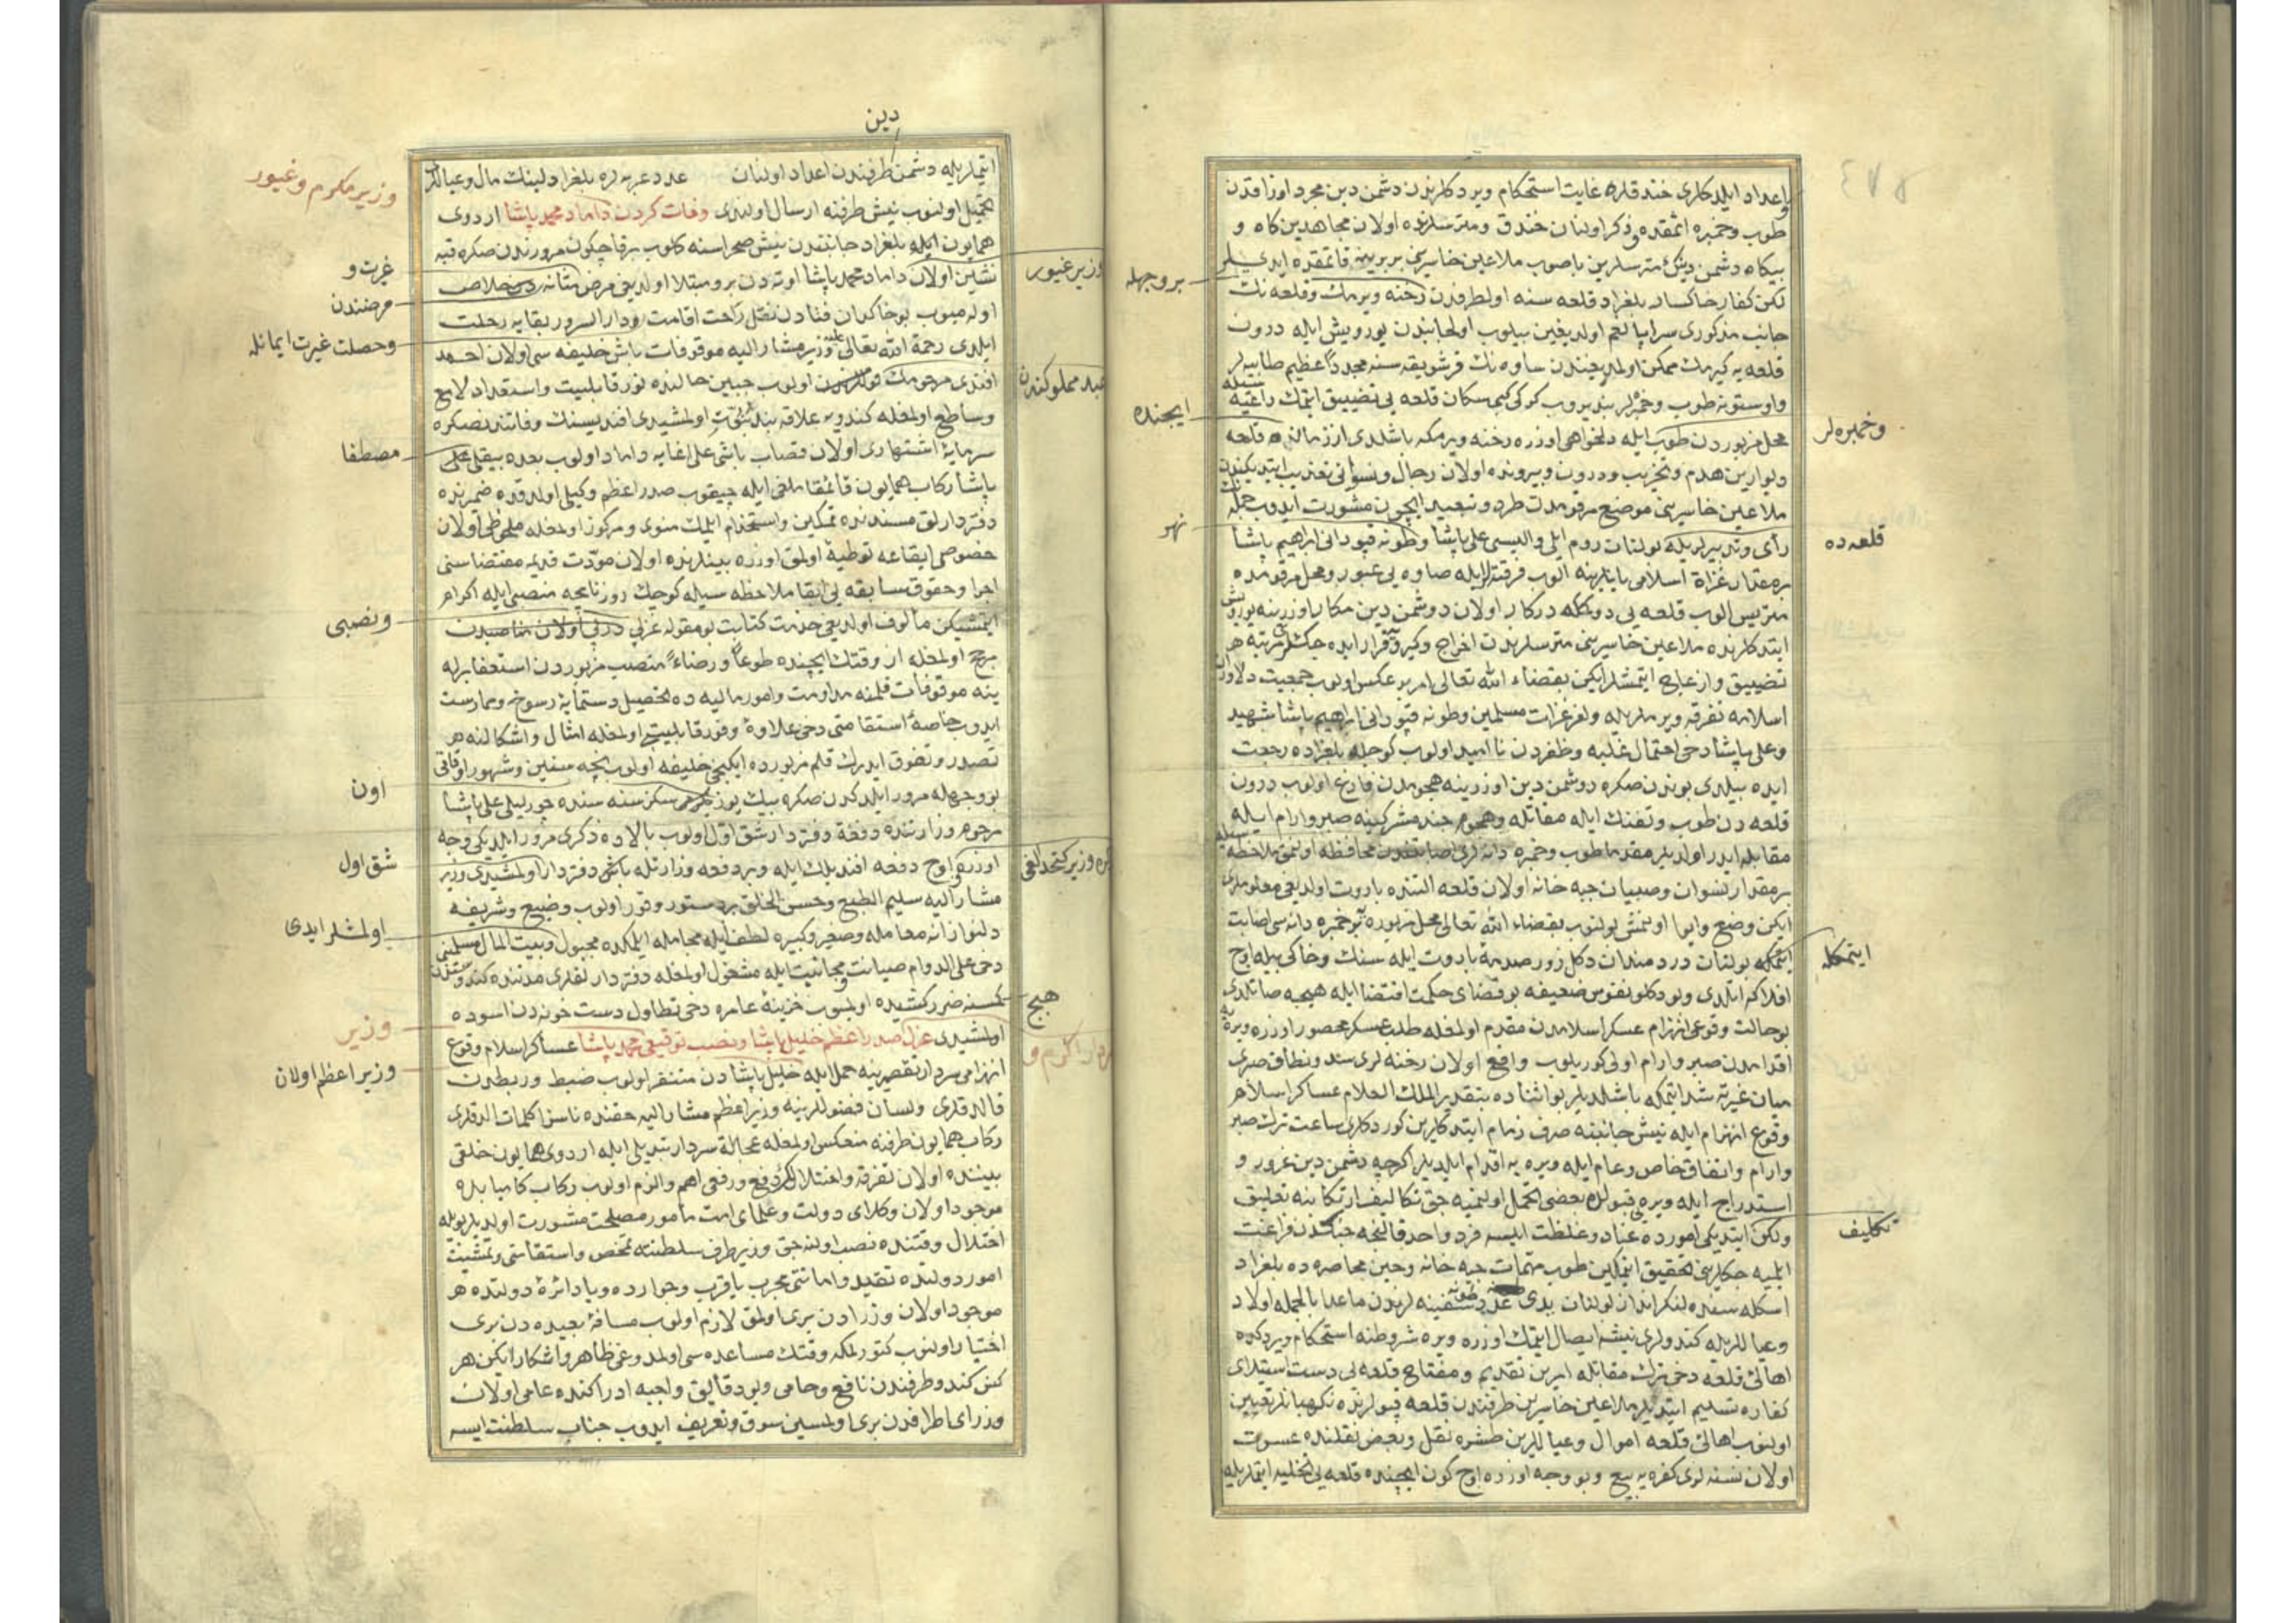 واعداد ایلدکلری خندقلره غایت استحکام ویردکلرندن دشمن دین مجرد اوزاقدن
طوب وخمبره اتمقده وذکر اولنان خندق ومترسلرنده اولان مجاهدین کاه و
بیکاه دشمن دینك مترسلرین باصوب ملاعین خاسرینی بربرینه قاتمقده ایدیلر
لکن کفار خاکسار بلغراد قلعه سنه اولطرفدن رخنه ویرمك وقلعه نك
جانب مذکوری سراپا لغم اولدیغین بیلوب اولجانبدن یورویش ایله درون
قلعه یه کیرمك ممکن اولمدیغندن ساوه نك قرشویقه سنه مجدداً عظیم طابیه لر
واوستونه طوب وخمبره لر
محل مزبوردن طوب ایله دلخواهی اوزره رخنه ویرمکه باشلدی قلعه
دیوارین هدم وتخریب ودرون وبیرونده اولان رجال ونسوانی تعذیب ایتدیکندن
ملاعین خاسرینی موضع مرقومدن طرد وتبعید ایچون مشورت ایدوب جمله نك
رأی وتدبیرلریله بولنان روم ایلی والیسی علی پاشا وطونه قپودانی ابراهیم پاشا
برمقدار غزاة اسلامی یانلرینه الوب فرقته لر ایله صاوه یی عبور ومحل مرقومده
متریس الوب قلعه یی دوکمکه درکار اولان دوشمن دین مکار اوزرینه یورویش
ایتدکلرنده ملاعین خاسرینی مترسلرندن اخراج وکیرو فرار ایده جکلری مرتبه هر
تضییق وازعاج ایتمشلر ایکن بقضاء الله تعالی امر بر عکس اولوب جمعیت دلاوران
اسلامه تفرقه ویرملریله ولغزغزات مسلمین وطونه قپودانی ابراهیم پاشا شهید
وعلی پاشا دخی احتمال غلبه وظفردن ناامید اولوب کوجله بلغراده رجعت
ایده بیلدی بوندن صکره دوشمن دین اوزرینه هجومدن فارغ اولوب درون
قلعه دن طوب وتفنك ایله مقاتله وهجوم جند مشرکینه صبر وارام ایله
مقابله ایدر اولدیلر مقدما طوب وخمبره دانه لری اصابتندن محافظه اولنمق ملاحظه سیله
برمقدار نسوان وصبیان جبه خانه اولان قلعه التنده باروت اولدیغی معلوملری
ایکن وضع وایوا اولنمش بولنوب بقضاء الله تعالی محل مزبوره بر خمبره دانه سی اصابت
ایتمکله بولنان دردمندان دکل زور صدمهٔ باروت ایله سنك وخاکی بیله اوج
افلاکه اتلدی وبو دکلو نفوس ضعیفه بو قضای حکمت اقتضا ایله هیچه صاتلدی
بوحالت وقوعی انهزام عسکر اسلامدن مقدم اولمغله طلب عسکر محصور اوزره ویره یه
اقدامدن صبر وارام اولی کوریلوب واقع اولان رخنه لری سد ونطاق صبری
میان غیرته شد ایتمکه باشلدیلر بو اثناده بتقدیر الملك العلام عساکر اسلامر
وقوع انهزام ایله نیش جانبنه صرف زمام ایتدکلرین کوردکلری ساعت ترك صبر
وارام واتفاق خاص وعام ایله ویره یه اقدام ایلدیلر اکرچه دشمن دین غرور و
استدراج ایله ویره یی قبوللره بعضی تحمل اولنمیه جق تکالیف ارتکابنه تعلیق
ولکن ایتدیکی اموره عناد وغلظت ایسه فرد واحد قالنجه جنکدن فراغت
ایلمیه جکلرینی تحقیق ایتمکلرین طوب مهمات جبه خانه وحین محاصره ده بلغراد
اسکله سنده لنکر انداز اولنان یدی عدد سفینه لرندن ماعدا بالجمله اولاد
وعیاللریله کندولری نیشه ایصال ایتمك اوزره ویره شروطنه استحکام ویردکده
اهالئ قلعه دخی ترك مقاتله امرین تقدیم ومفتاح قلعه یی دست استیلای
کفاره تسلیم ایتدیلر ملاعین خاسرین طرفندن قلعه قپولرنده نکهبانلر تعیین
اولنوب اهالئ قلعه اموال وعیاللرین طشره نقل وبعض نقلنده عسرت
اولان نسنه لری کفره یه بیع وبو وجه اوزره اوج کون ایچنده قلعه یی تخلیه ایتملریله
بروجهله
ایچنده
نهر
وخمبره لر
قلعه ده
ایتمکله
تکالیف
دین
ایتملریله دشمن طرفندن اعداد اولنان عدد عربه لره بلغرادلینك مال وعیاللری
تحمیل اولنوب نیش طرفنه ارسال اولندی وفات کردن داماد محمد پاشا اردوی
همایون ایله بلغراد جانبندن نیش صحراسنه کلوب برقاچ کون مرورندن صکره قبه
نشین اولان داماد محمد پاشا اوته دن برو مبتلا اولدیغی مرض مثانه دن خلاص
اوله میوب بو خاکدان فنادن نقل رخت اقامت ودار السرور بقایه رحلت
ایلدی رحمة الله تعالی علیه وزیر مشار الیه موقوفات باش خلیفه سی اولان احمد
افندی مرحومك اولوب جبین حالنده نور قابلیت واستعداد لامع
وساطع اولمغله کندویه علاقه بند بنوّت اولمشیدی افندیسنك وفاتندنصکره
سرمایهٔ اشتهاری اولان قصاب باشی علی اغایه داماد اولوب بعده بیقلی علی
پاشا رکاب همایون قائمقاملغی ایله چیقوب صدر اعظم وکیلی اولدقده ضمیرنده
دفتردارلق مسندنده تمکین واستخدام ایلمك منوی ومرکوز اولمغله ملحوظی اولان
خصوصی ایقاعه توطیه اولمق اوزره بینلرنده اولان مودّت قدیمه مقتضاسنی
اجرا وحقوق سابقه یی ابقا ملاحظه سیله کوچك روزنامجه منصبی ایله اکرام
ایتمشیکن مألوف اولدیغی خدمت کتابت بو مقوله عزلی اولان مناصبدن
مرجح اولمغله از وقتك ایچنده طوعاً ورضاءً منصب مزبوردن استعفا برله
ینه موقوفات قلمنه مداومت وامور مالیه ده تحصیل دستمایهٔ رسوخ وممارست
ایدوب خاصهٔ استقامتی دخی علاوهٔ وفور قابلیتی اولمغله امثال واشکالنه هر
تصدر وتفوق ایدرك قلم مزبورده ایکنجی خلیفه اولوب نیجه سنین وشهور اوقاتی
بو وجهله مرور ایلدکدن صکره بیك یوز یکرمی سکز سنه سنده چورلیلی علی پاشا
مرحوم وزارتنده دفعة دفتردار شق اوّل اولوب بالاده ذکری مرور ایلدیکی وجه
اوزره اوج دفعه افندیلك ایله وبر دفعه وزارتله باش دفتردار اولمشیدی وزیر
مشار الیه سلیم الطبع وحسن الخلق بر دستور وقور اولوب وضیع وشریفه
دلنوازانه معامله وصغیر وکبیره لطف ایله مجامله ایلمکده مجبول وبیت المال مسلمینی
دخی علی الدوام صیانت ومجانبت ایله مشغول اولمغله دفتردارلقلری مدتنده کندوسندن
کمسنه ضرر کشیده اولمیوب خزینهٔ عامره دخی تطاول دست خونه دن اسوده
اولمشیدی عزل صدر اعظم خلیل پاشا ونصب توقیعی محمد پاشا عساکر اسلام وقوع
انهزامی سردار تقصیرینه حمل ایله خلیل پاشادن متنفر اولوب ضبط وربطدن
قالدقلری ولسان فضوللرینه وزیر اعظم مشار الیه حقنده ناسزا کلمات الدقلری
رکاب همایون طرفنه منعکس اولمغله عجالة سردار تبدیلی ایله اردوی همایون خلقی
بیننده اولان تفرقه واختلاللری دفع ورفعی اهم والزم اولوب رکاب کامیابده
موجود اولان وکلای دولت وعلمای امت مأمور مصلحت مشورت اولدیلر بویله
اختلال وقتنده نصب اولنه جق وزیر طرف سلطنته تخص واستقامتی وتمشیت
امور دولتده تقید وامانتی مجرب یا قرب وجوارده ویا دائرهٔ دولتده هر
موجود اولان وزرادن بری اولمق لازم اولوب مسافهٔ بعیده دن بری
اختیار اولنوب کتورلمکه وقتك مساعده سی اولمدوغی ظاهر واشکار ایکن هر
کس کندو طرفندن نافع وحامی وبو دقایق واجبه ادراکنده عامی اولان
وزرای اطرافدن بری اولمسین سوق وتعریف ایدوب جناب سلطنت ایسه
وزیر مکرم وغیور
غیرت و
مرضندن
وحصلت غیرت ایمانله
مصطفا
ونصبی
اون
شق اول
اولمشلر ایدی
وزیر
وزیر اعظم اولان
وزیر غیور
هیچ